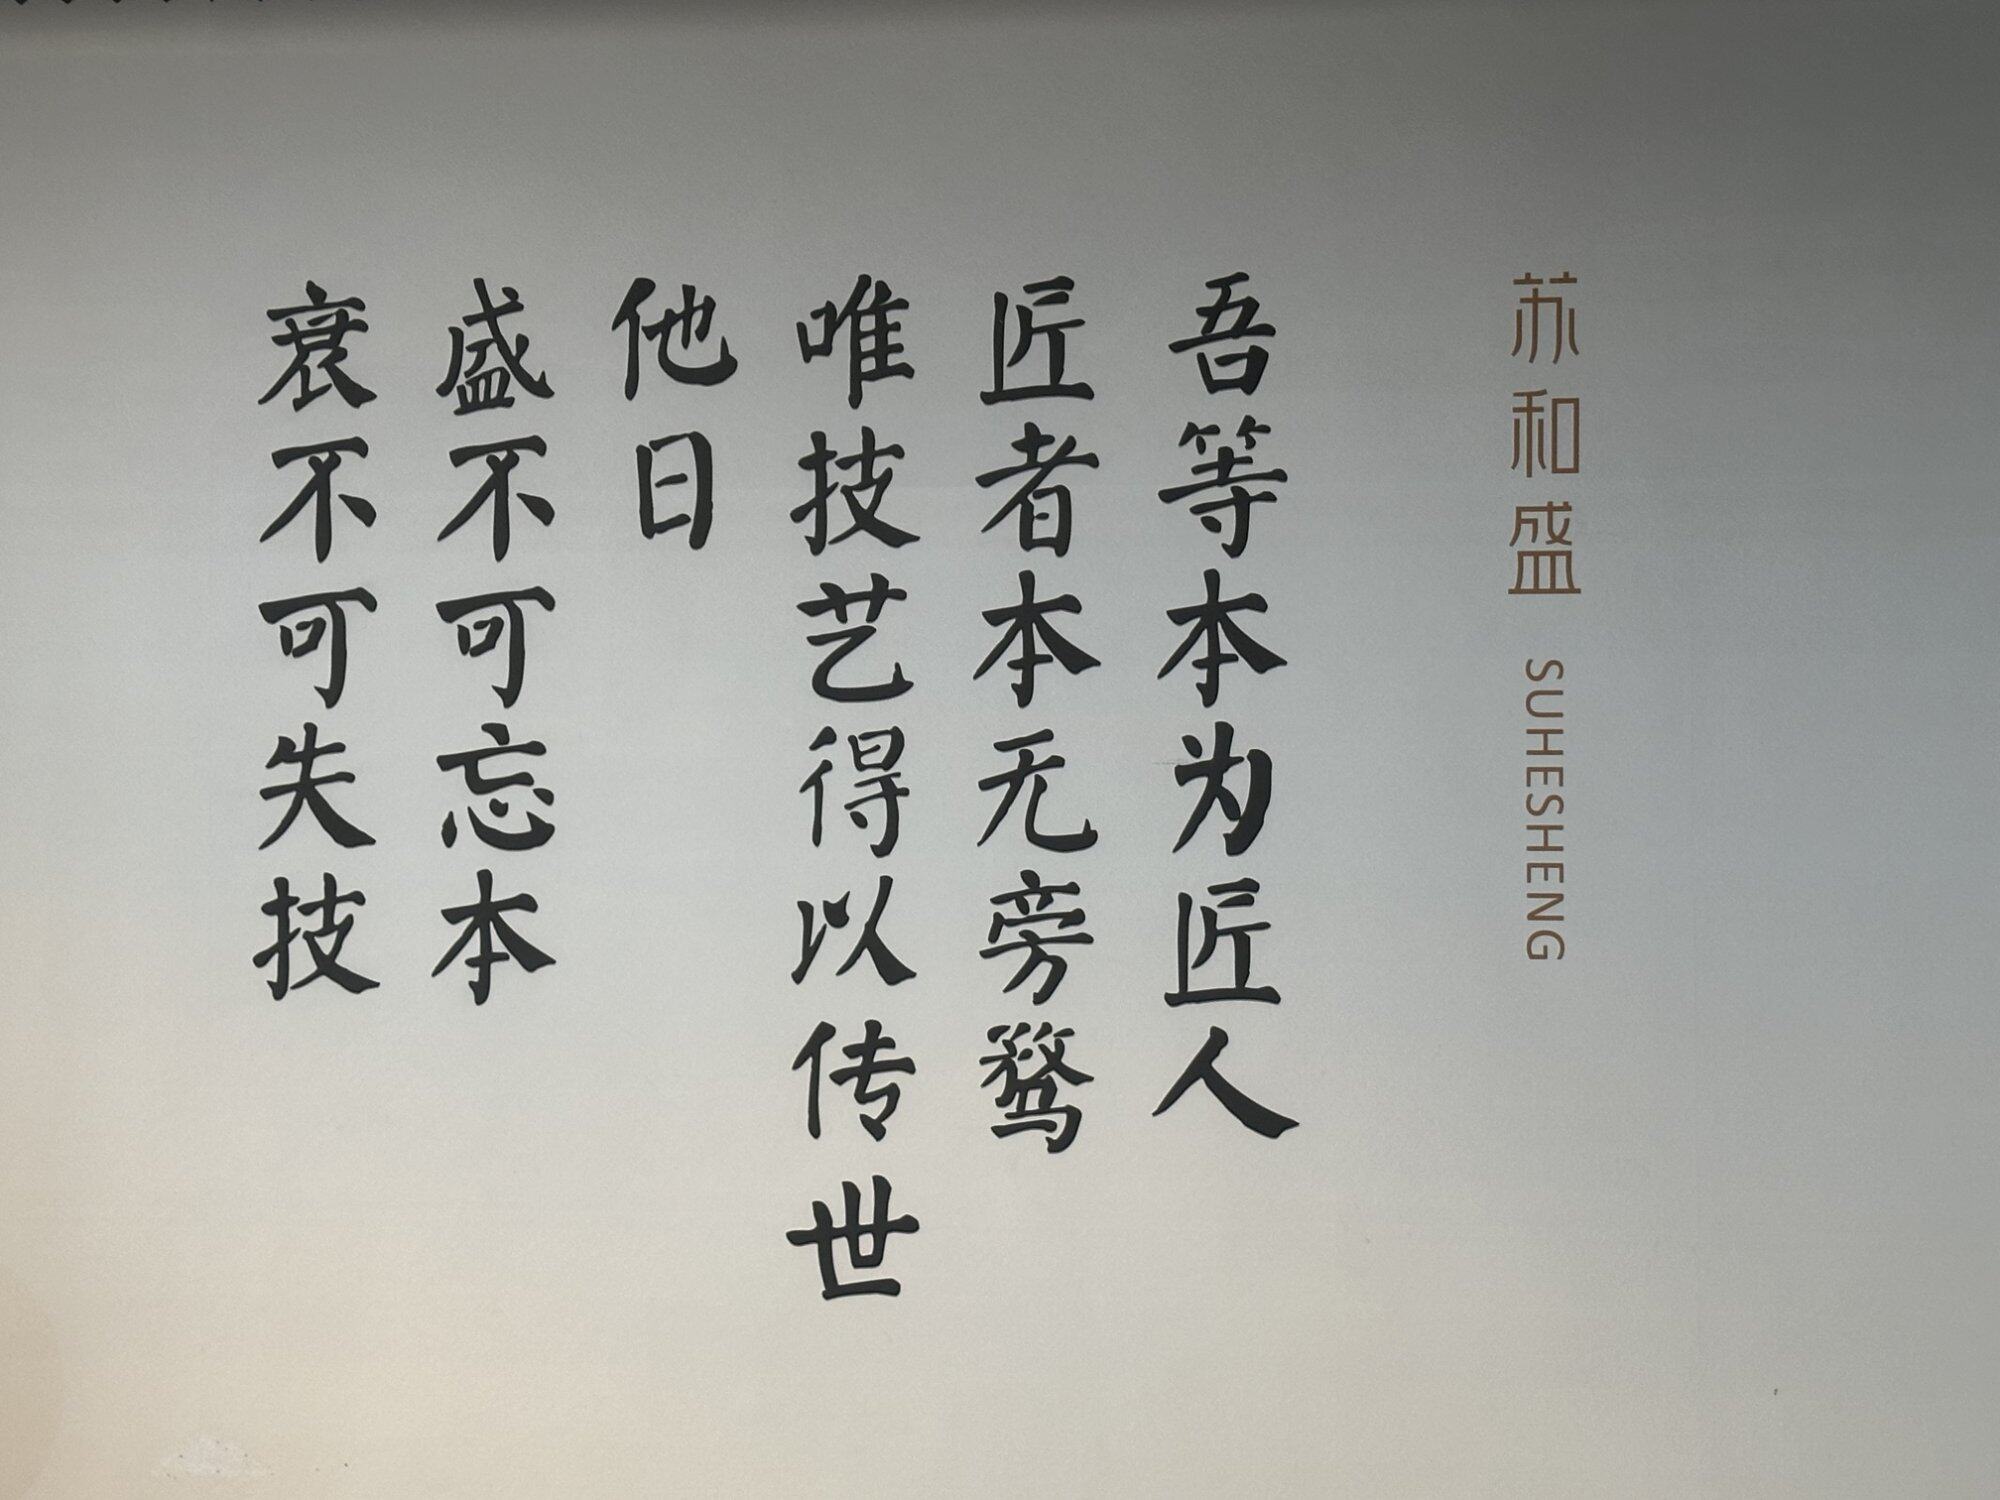 苏和盛 SUHESHENG
吾等本为匠人
匠者本无旁骛
唯技艺得以传世
他日
盛不可忘本
衰不可失技